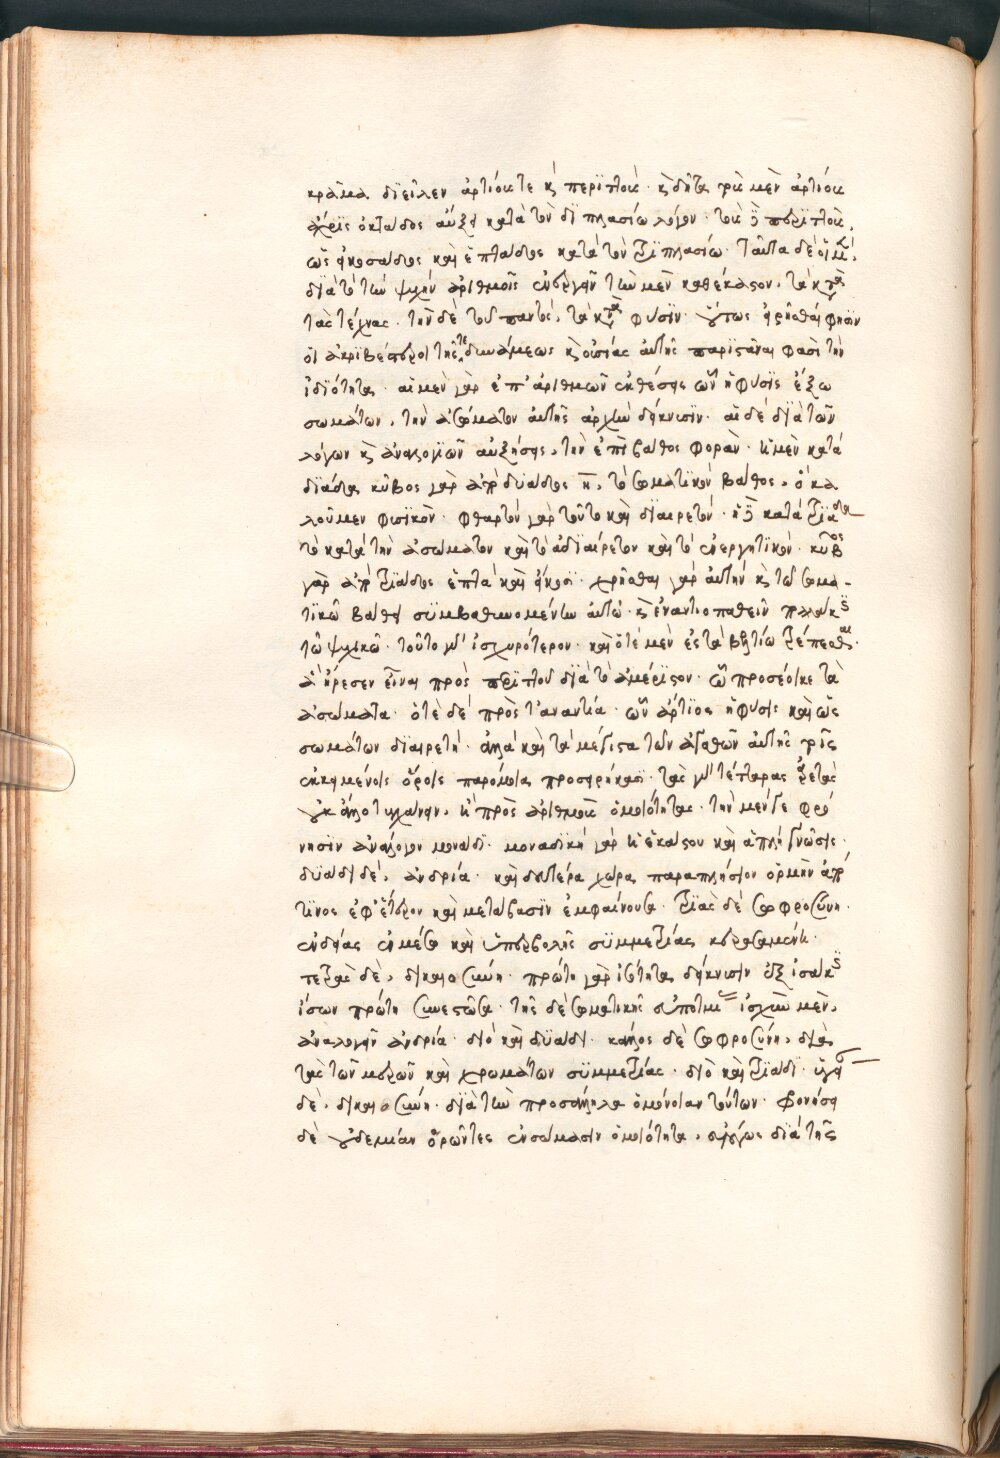 κρᾶμα διεῖλεν ἀρτίοις τε καὶ περιττοῖς· καὶ δῆτα τοῖς μὲν ἀρτίοις
ἄχρις ὀκτάδος αὔξει κατὰ τὸν διπλασίω λόγον· τοῖς δὲ περιττοῖς,
ὡς εἰκοσάδος καὶ ἑπτάδος κατὰ τὸν τριπλασίω. ταῦτα δὲ
διὰ τὸ τῶν ψυχὴν ἀριθμοῖς ἐνεργεῖν τῶν μὲν καθέκαστον, τὰ κατὰ
τὰς τέχνας· τὴν δὲ τοῦ παντός, τὰ κατὰ φύσιν· οὕτως
οἱ ἀκριβέστεροι τῆς τε δυνάμεως καὶ οὐσίας αὐτῆς παριστάναι φασὶ τὴν
ἰδιότητα· αἱ μὲν γὰρ ἐπ' ἀριθμῶν ἐκθέσεις ὧν ἡ φύσις ἔξω
σωμάτων, τὴν ἀσώματον αὐτῆς ἀρχὴν δείκνυσιν· αἱ δὲ διὰ τῶν
λόγων καὶ ἀναλογιῶν αὐξήσεις, τὴν ἐπὶ βάθος φοράν· ἡ μὲν κατὰ
δυάδα, κύβος γὰρ ἀπὸ δυάδος η, τὸ σωματικὸν βάθος, ὃ κα
λοῦμεν φυσικόν· φθαρτὸν γὰρ τοῦτο καὶ διαιρετόν· ἡ δὲ κατὰ τριάδα
τὸ κατὰ τὴν ἀσώματον καὶ τὸ ἀδιαίρετον καὶ τὸ ἐνεργητικόν· κύβος
γὰρ ἀπὸ τριάδος ἑπτὰ καὶ εἴκοσι· χρῆσθαι γὰρ αὐτὴν καὶ τῷ σωμα-
τικῷ βάθει συμβαθυνομένων αὐτῷ· καὶ ἐναντιοπαθεῖν πλεονάκις
τῷ ψυχικῷ· τοῦτο γὰρ ἰσχυρότερον· καὶ ὁτὲ μὲν ἐς τὰ βελτίω τρέπεσθαι·
ἃ εἴρεσεν εἶναι πρὸς περιττοῦ διὰ τὸ ἀμέριστον· ᾧ προσέοικε τὰ
ἀσώματα· ὁτὲ δὲ πρὸς τἀναντία· ὧν ἄρτιος ἡ φύσις καὶ ὡς
σωμάτων διαιρετή· ἀλλὰ καὶ τὰ μέγιστα τῶν ἀγαθῶν αὐτῆς τοῖς
ἐκκειμένοις ὅροις παρόμοια προσειρήκασι· τὰς γὰρ τέτταρας ἀρετὰς
οὐκ ἄλλο τυγχάνειν, ἢ πρὸς ἀριθμοὺς ὁμοιότητας· τὴν μέν γε φρό
νησιν ἀνάλογον μονάδι· μοναδικὴ γὰρ ἡ ἑκάστου καὶ ἁπλῆ γνῶσις·
δυάδι δέ, ἀνδρία· καὶ δευτέρα χώρα παραπλήσιον ὁρμὴν ἀπό
τινος ἐφ' ἕτερον καὶ μετάβασιν ἐμφαίνουσα· τριὰς δὲ σωφροσύνη·
ἐνδείας ἐν μέσῳ καὶ ὑπερβολῆς συμμετρίας
τετρὰς δέ, δικαιοσύνη· πρώτη γὰρ ἰσότητα δείκνυσιν ἐξ ἰσάκις
ἴσων πρώτη συνεστῶσα· τῆς δὲ σωματικῆς ἰσχὺν μέν,
ἀναλογεῖν ἀνδρία· διὸ καὶ δυάδι· κάλλος δὲ σωφροσύνη, διὰ
τὰς τῶν μερῶν καὶ χρωμάτων συμμετρίας· διὸ καὶ τριάδι·
δέ, δικαιοσύνη· διὰ τῶν προσάλληλα ὁμόνοιαν τούτων· φρονήσει
δὲ οὐδεμίαν ὁρῶντες ἐν σώμασιν ὁμοιότητα, διὰ τῆς